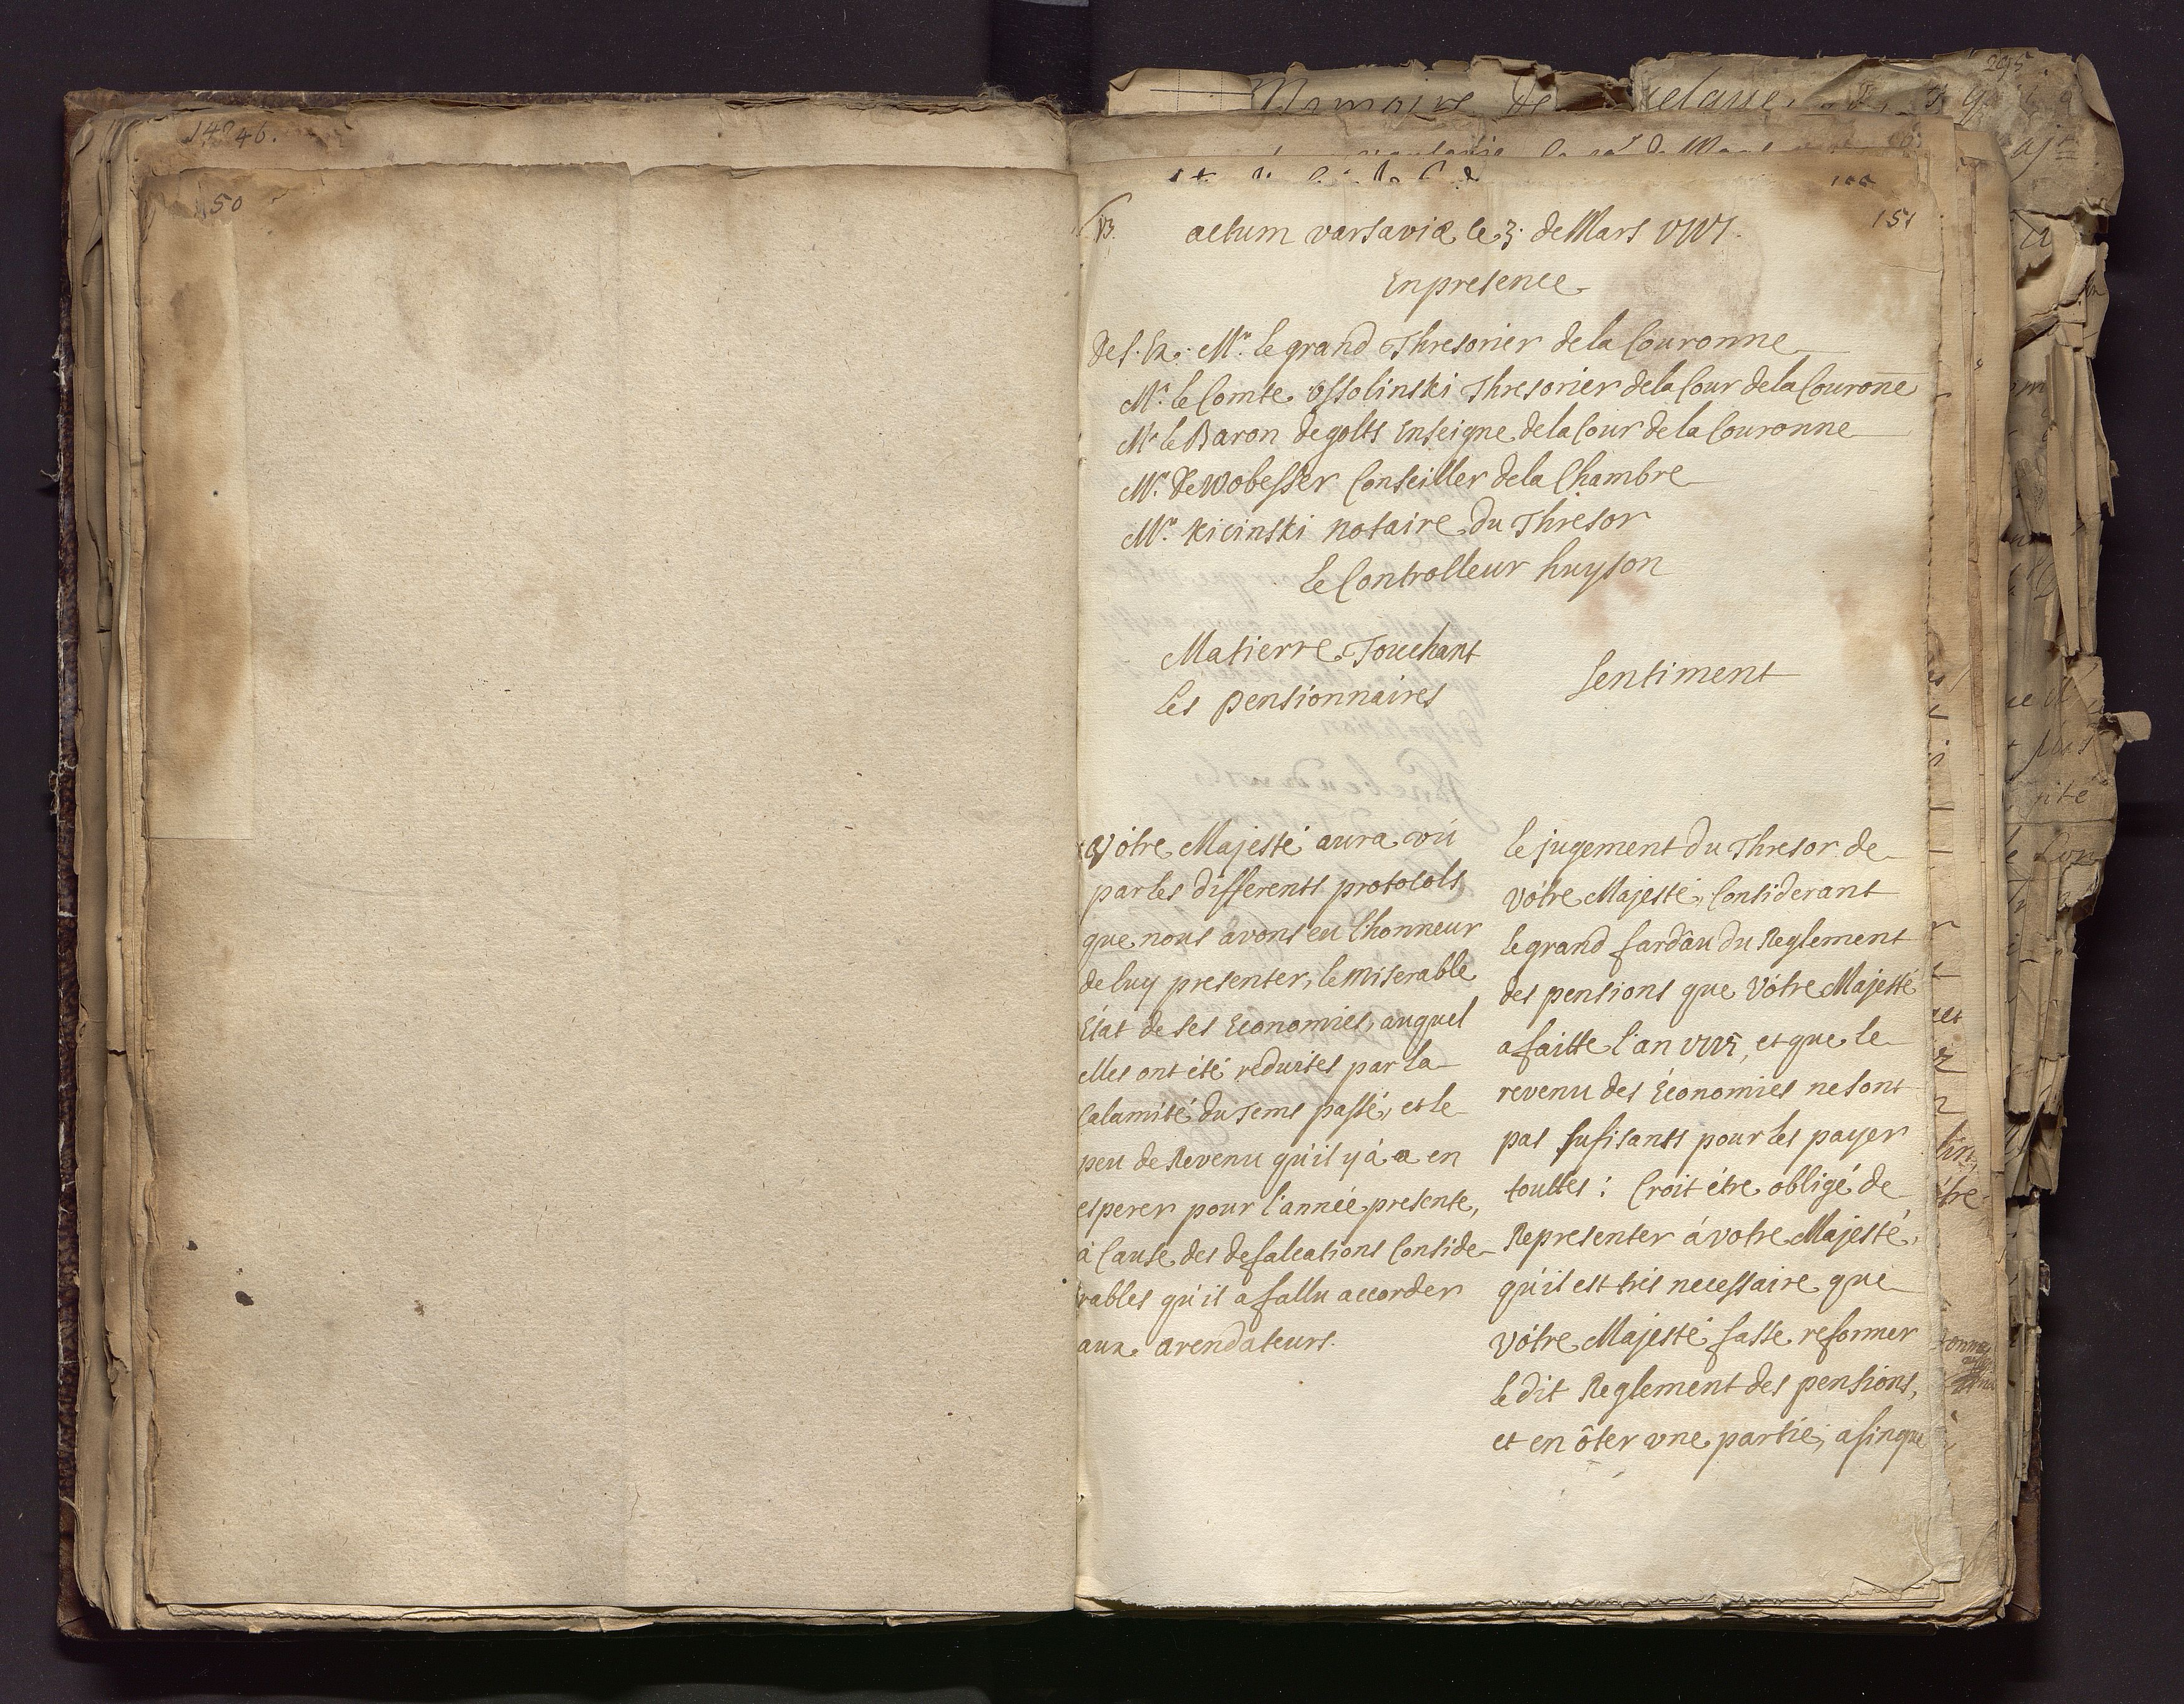 147
46.
50
Memoire de
151
13.
actum varsaviæ le 3. de Mars
En presence
de S. Ex. Mr. le grand Thresorier de la Couronne
Mr. le Comte Ossolinski Thresorier de la Cour de la Couron̄e
Mr. le Baron de golts Enseigne de la Cour de la Couronne
Mr. de Wobesser Conseiller de la Chambre
Mr. Kicinski notaire du Thresor
le Controlleur huyson
Matierre Touchant
les pensionnaires
Sentiment
Vótre Majesté aura vú
par les differents protocols
que nous avons eu l'honneur
de luy presenter, le miserable
Etat de ses Economies, auquel
elles ont été reduites par la
Calamité du Tems passé, et le
peu de Revenu qu'il y à a en
esperer pour l'année presente,
à Cause des defalcations Conside-
rables qu'il a fallu accorder
aux arendateurs.
le jugement du Thresor de
Vótre Majesté, Considerant
le grand fardâu du Reglement
des pensions que Vótre Majesté
a faitte l'an et que le
revenu des Économies ne sont
pas sufisants pour les payer
touttes : Croit étre obligé de
Representer á votre Majesté,
qu'il est trés necessaire que
Vótre Majesté fasse reformer
le dit Reglement des pensions,
et en ôter une partie, afinque